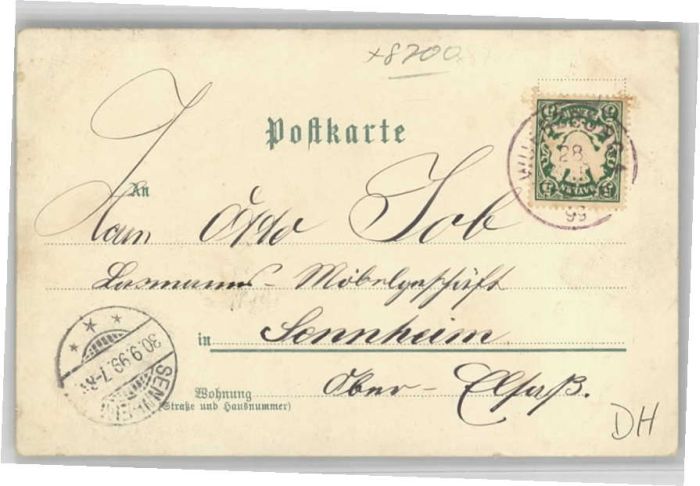 x8700
Postkarte
28
99
An
Otto Job
Möbelgeschäft
in Sennheim
Wohnung
Ober-Elsaß.
(Straße und Hausnummer)
30.9.99.7-8
SENNHEIM
DH